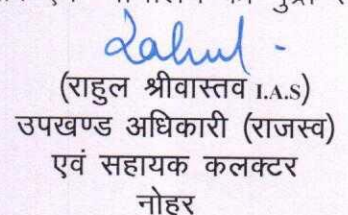 Rahul
(राहुल श्रीवास्तव I.A.S)
उपखण्ड अधिकारी (राजस्व)
एवं सहायक कलक्टर
नोहर